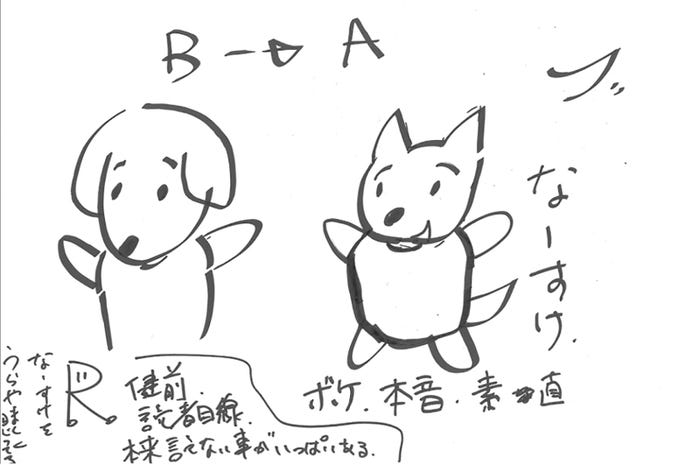 B → A
ブ
なーすけ.
ボケ.本音.素直
健前.
読者目線.
本来言えない事がいっぱいある.
R.
なーすけを
うらやましく